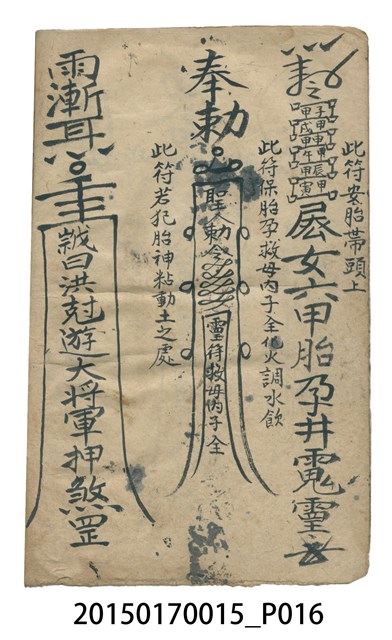 此符安胎帶頭上
甲子甲申甲辰
甲戌甲午甲寅
女六甲胎孕井
此符保胎孕救母內子全化火調水飲
奉勅
聖人勅令
靈符救母內子全
此符若犯胎神粘動土之處
雨漸耳
曰洪遊大将軍押煞罡
20150170015_P016